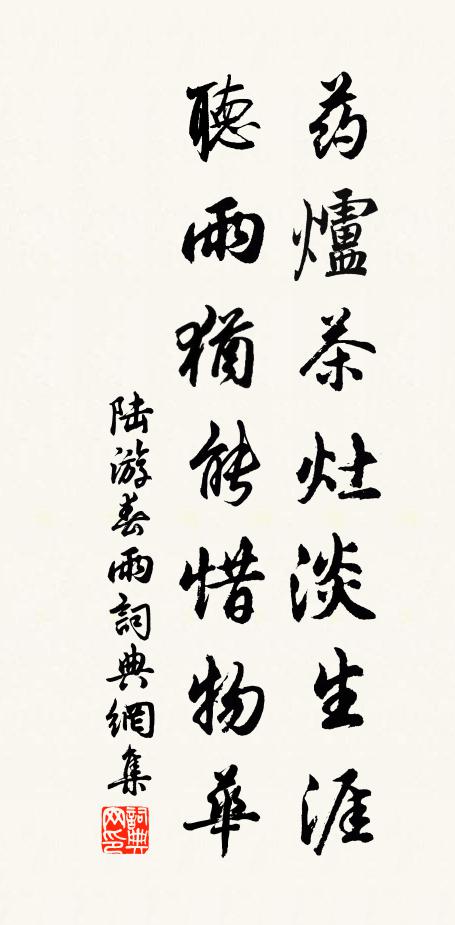 药爐茶灶淡生涯
聽雨猶能惜物華
陆游春雨詞典網集
詞典网印